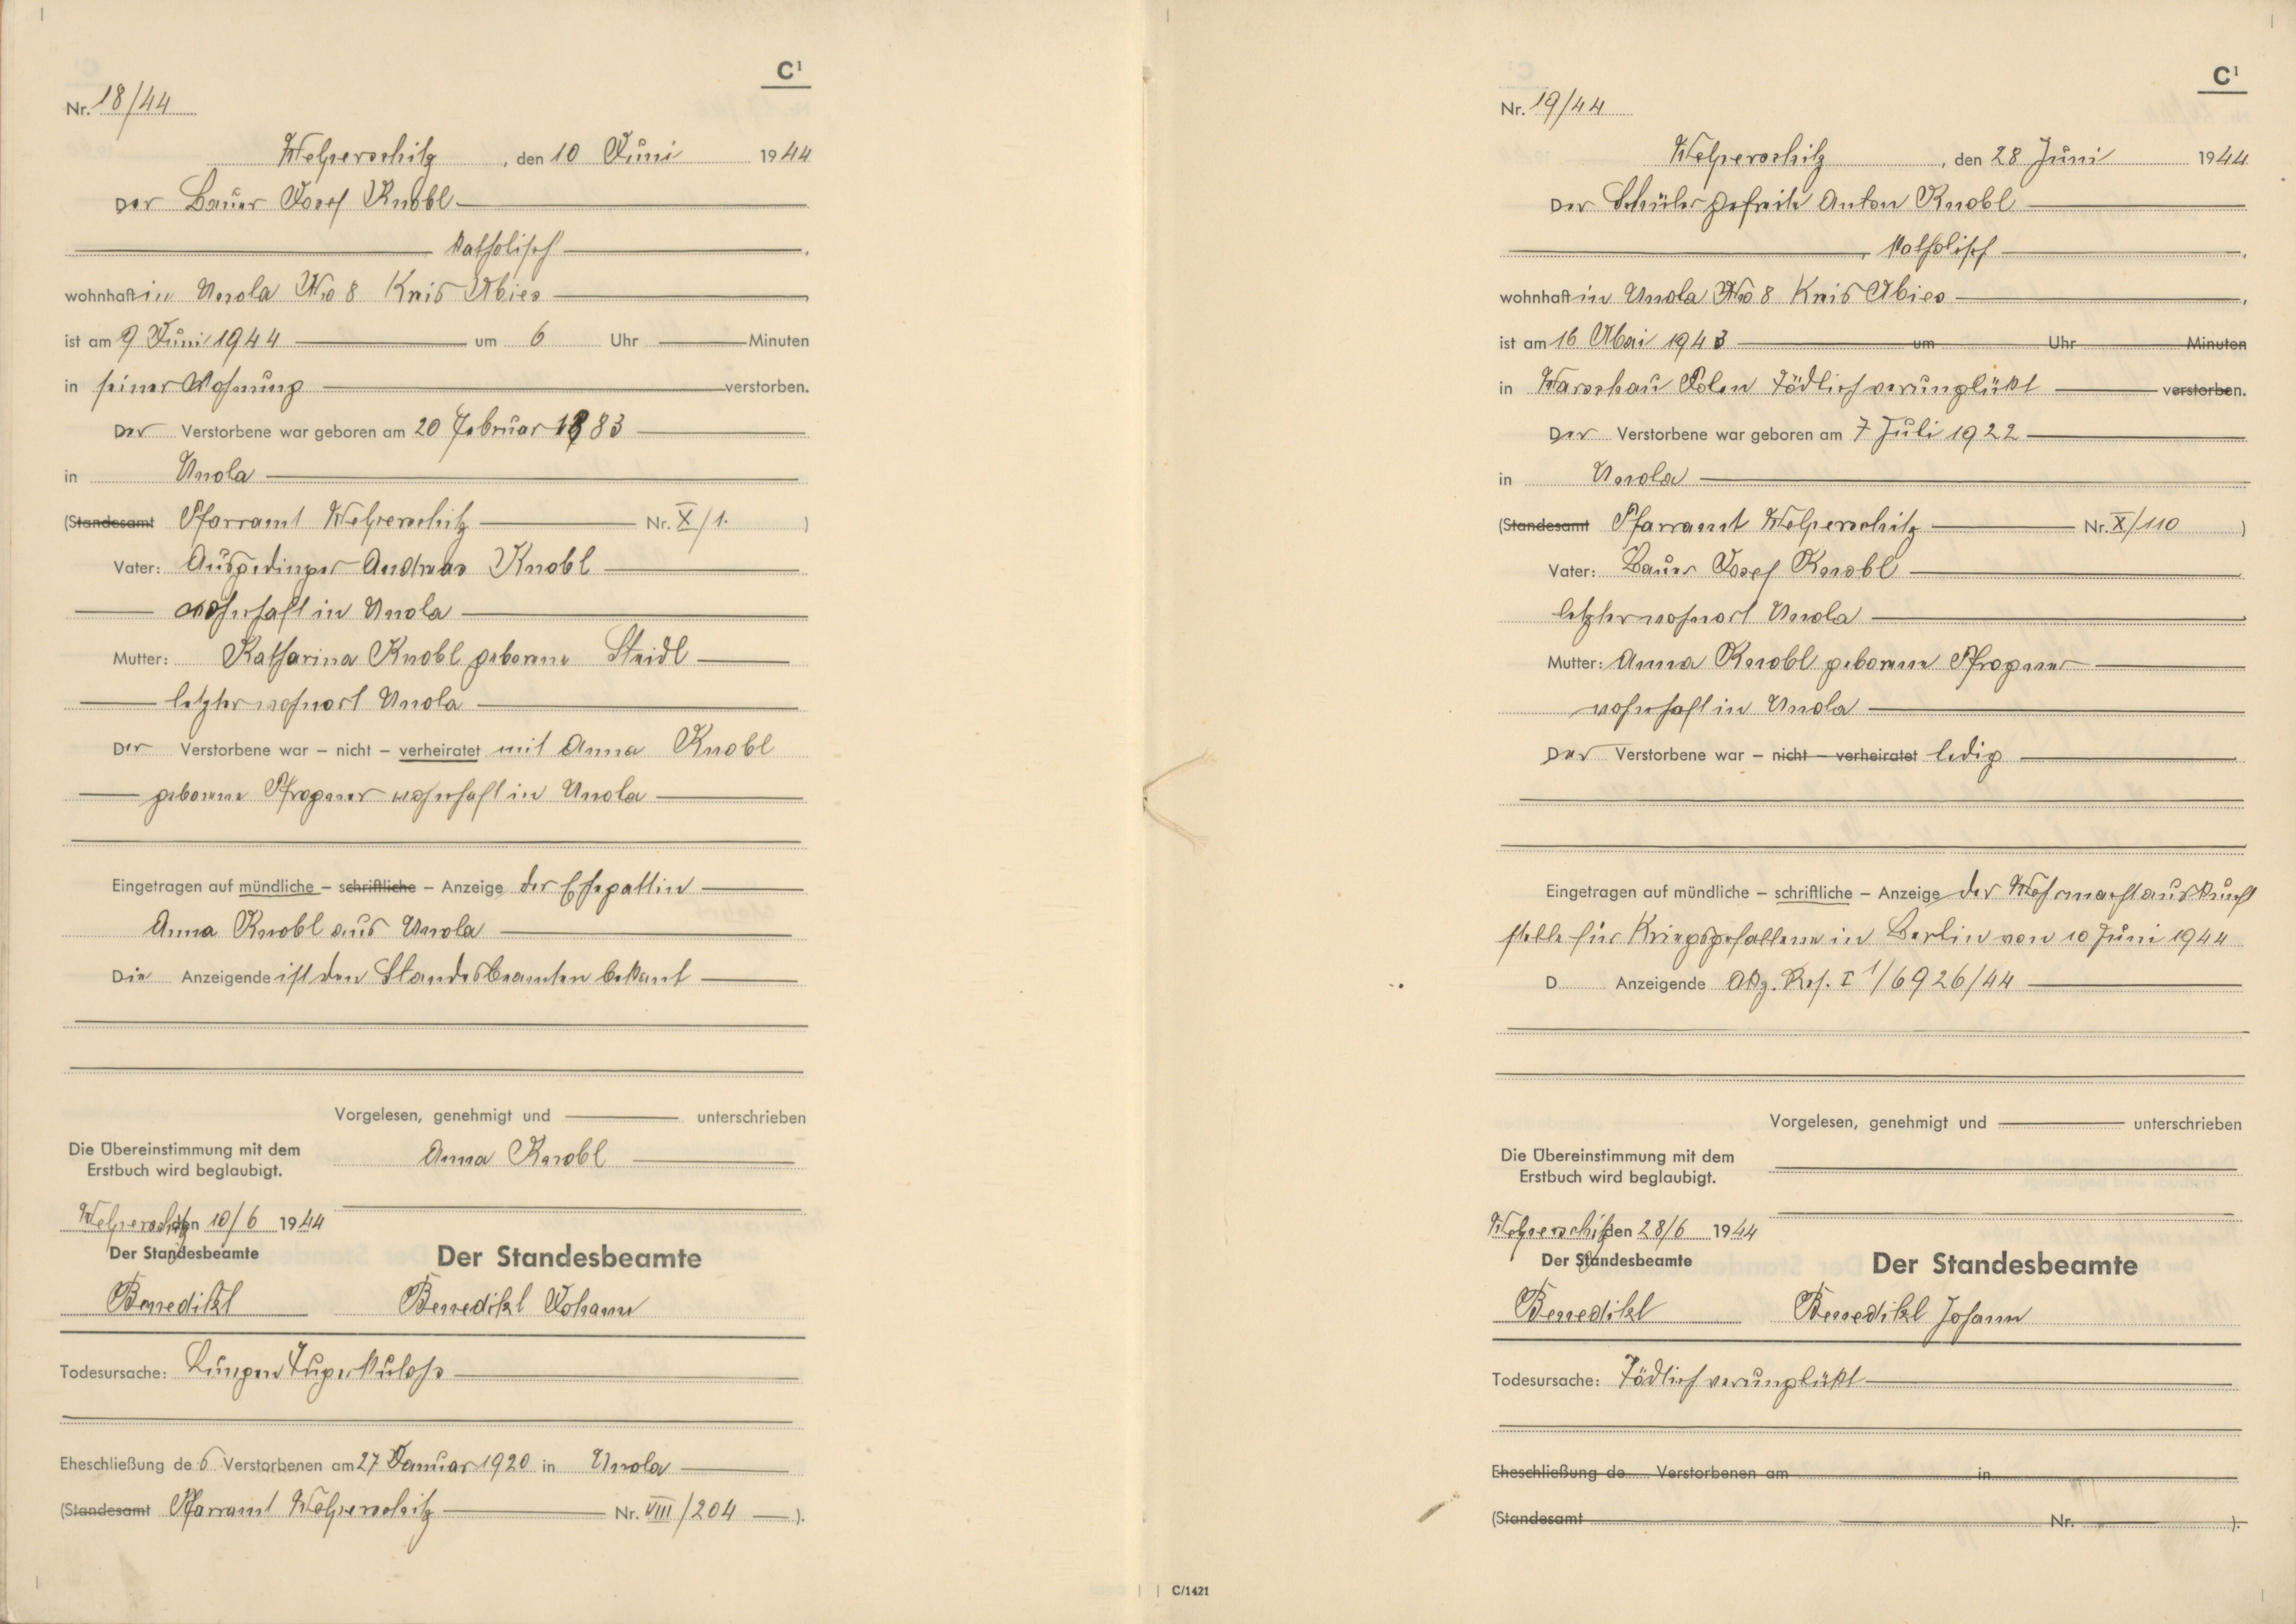 C¹
Nr. 18/44
Welperschitz, den 10 Juni 1944
Der Bauer Josef Knobl
katholisch
wohnhaft in Unola No 8 Kreis Mies
ist am 9 Juni 1944 um 6 Uhr Minuten
in seiner Wohnung verstorben.
Der Verstorbene war geboren am 20 Februar 1883
in Unola
(Standesamt Pfarramt Welperschitz Nr. X/1. )
Vater: Ausgedinger Andreas Knobl
wohnhaft in Unola
Mutter: Katharina Knobl geborene Steidl
letzter wohnort Unola
Der Verstorbene war – nicht – verheiratet mit Anna Knobl
geborene Pfrogner wohnhaft in Unola
Eingetragen auf mündliche – schriftliche – Anzeige der Ehegattin
Anna Knobl aus Unola
Die Anzeigende ist den Standesbeamten bekant
Vorgelesen, genehmigt und unterschrieben
Die Übereinstimmung mit dem
Erstbuch wird beglaubigt.
Anna Knobl
Welperschitz den 10/6 1944
Der Standesbeamte
Der Standesbeamte
Benedikt
Benedikt Johann
Todesursache: Lungen Tuperkulose
Eheschließung des Verstorbenen am 27 Januar 1920 in Unola
(Standesamt Pfarramt Welperschitz Nr. VIII/204 ).
C¹
Nr. 19/44
Welperschitz, den 28 Juni 1944
Der Schüler Gefreite Anton Knobl
katholisch
wohnhaft in Unola No 8 Kreis Mies
ist am 16 Mai 1943 um Uhr Minuten
in Warschau Polen Tödlich verunglükt verstorben.
Der Verstorbene war geboren am 7 Juli 1922
in Unola
(Standesamt Pfarramt Welperschitz Nr. X/110 )
Vater: Bauer Josef Knobl
letzter wohnort Unola
Mutter: Anna Knobl geborene Pfrogner
wohnhaft in Unola
Der Verstorbene war – nicht – verheiratet ledig
Eingetragen auf mündliche – schriftliche – Anzeige der Wehrmachtauskunft
stelle für Kriegsgefallene in Berlin von 10 Juni 1944
D Anzeigende Akz. Ref. I 1/6926/44
Vorgelesen, genehmigt und unterschrieben
Die Übereinstimmung mit dem
Erstbuch wird beglaubigt.
Welperschitz den 28/6 1944
Der Standesbeamte
Der Standesbeamte
Benedikt
Benedikt Johann
Todesursache: Tödlich verunglükt
Eheschließung de Verstorbenen am in
(Standesamt Nr. ).
C/1421